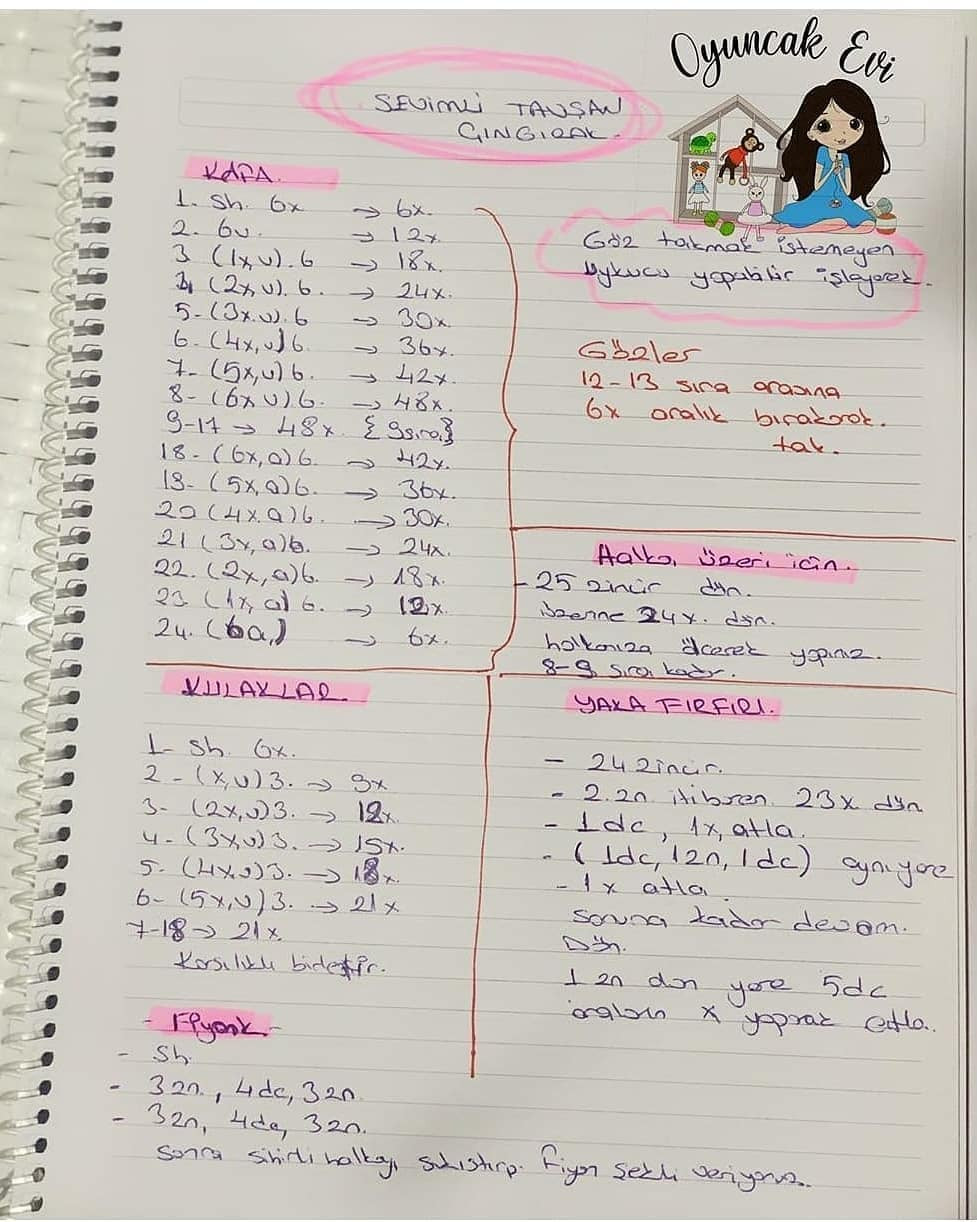 Oyuncak Evi
SEVİMLİ TAVŞAN
ÇINGIRAK.
KAFA.
1. Sh. 6x → 6x.
2. 6v. → 12x
3 (1x,v).6 → 18x.
4. (2x,v).6. → 24x.
5-(3x.v).6 → 30x
6.(4x,v)6. → 36x.
7-(5x,v)6. → 42x.
8-(6x v)6. → 48x.
9-17 → 48x. {9sıra}
18-(6x,a)6. → 42x.
19-(5x,a)6. → 36x.
20 (4x,a)6. → 30x.
21 (3x,a)6. → 24x.
22.(2x,a)6. → 18x.
23 (1x,a) 6. → 12x.
24.(6a,) → 6x.
Göz takmak istemeyen
uykucu yapabilir işleyerek.
Gözler
12-13 sıra arasına
6x aralık bırakarak.
tak.
Halka, üzeri için.
- 25 zincir dön.
üzerine 24x. dön.
halkanıza ölçerek yapınız.
8-9 sıra kadar.
KULAKLAR
1- Sh. 6x.
2-(x,v)3. → 9x
3-(2x,v)3. → 12x.
4-(3xv)3. → 15x.
5.(4x,v)3. → 18x.
6-(5x,v)3. → 21x
7-18 → 21x.
Karşılıklı birleştir.
YAKA FIRFIRI.
- 24 zincir.
- 2.zn. itibren 23x dön
- 1dc, 1x, atla.
- (1dc, 1zn, 1dc) aynı yere
- 1x atla
sonuna kadar devam.
Dön.
1 zn dan yere 5dc
aralara x yaparak atla.
- Fiyonk.-
- Sh
- 3zn., 4dc, 3zn.
- 3zn, 4dc, 3zn.
sonra sihirli halkayı sıkıştırıp. fiyon şekli veriyoruz.